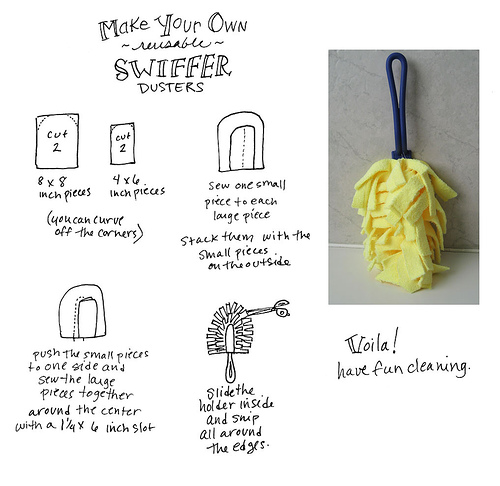 Make Your Own
~reusable~
SWIFFER
DUSTERS
cut
2
8 x 8
inch pieces
cut
2
4 x 6
inch pieces
(you can curve
off the corners)
sew one small
piece to each
large piece
stack them with the
small pieces
on the outside
push the small pieces
to one side and
sew the large
pieces together
around the center
with a 1 1/4 x 6 inch slot
slide the
holder inside
and snip
all around
the edges.
Voila!
have fun cleaning.